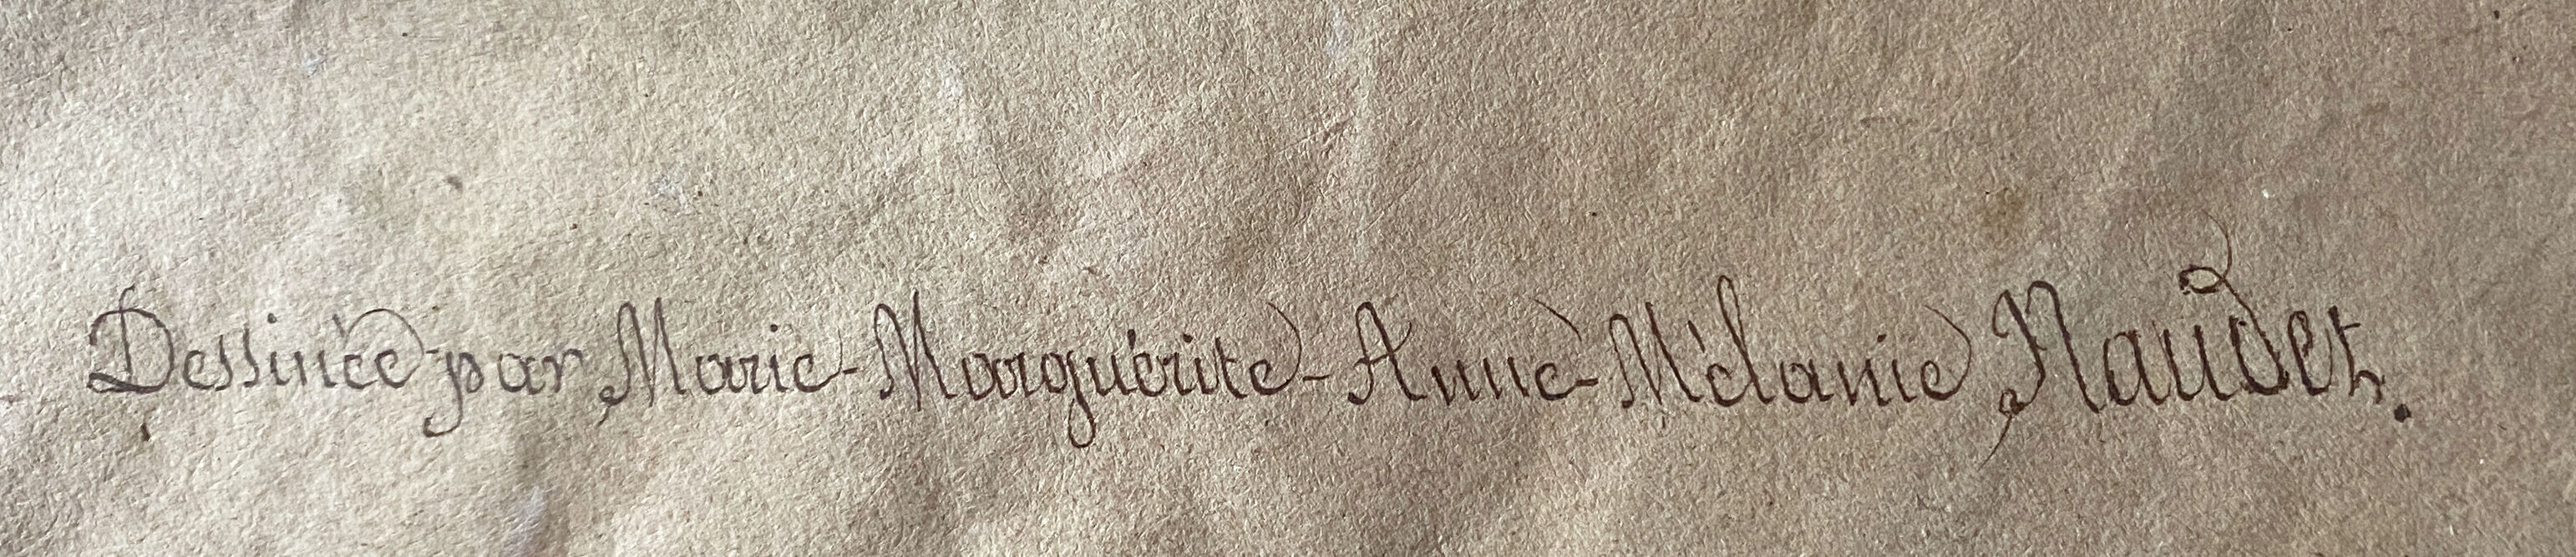 Dessinée par Marie-Marguérite-Anne-Mélanie Naudet.